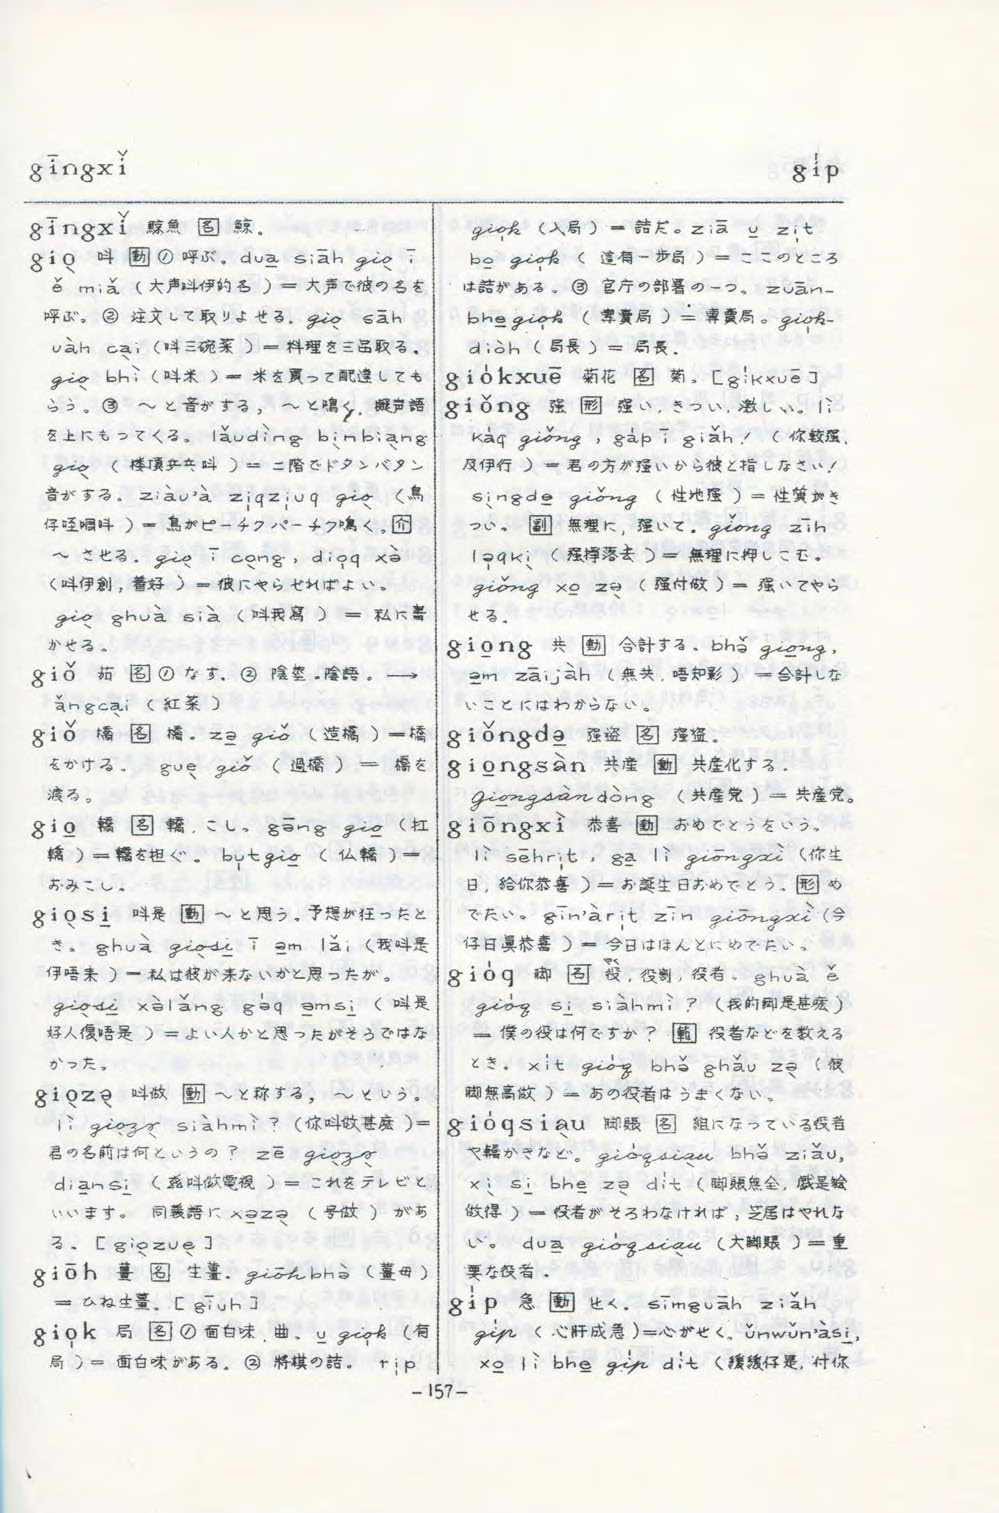 gīngxǐ
gi̍p
gīngxǐ 鯨魚 名 鯨。
gio̱ 叫 動 ① 呼ぶ。dua̱ siāh gio̱ ī
ě miǎ (大声叫伊的名) = 大声で彼の名を
呼ぶ。② 注文して取りよせる. gio̱ sāh
uàh ca̱i (叫三碗菜) = 料理を三皿取る.
gio̱ bhì (叫米) = 米を買って配達しても
らう。③ 〜と音がする, 〜と鳴く. 擬声語
を上にもってくる。lǎudìng bi̱nbia̱ng
gio̱ (楼頂乒乓叫) = 二階でドタンバタン
音がする。ziàu'à zi̱qziu̱q gio̱ (鳥
仔咥啁叫) = 鳥がピーチクパーチク鳴く。介
〜させる. gio̱ ī co̱ng, dio̱q xə̀
(叫伊創, 着好) = 彼にやらせればよい。
gio̱ ghuà sià (叫我寫) = 私に書
かせる。
giǒ 茄 名 ① なす. ② 陰莖. 陰語。→
ǎngca̱i (紅菜)
giǒ 橋 名 橋. zə̱ giǒ (造橋) = 橋
をかける。 gue̱ giǒ (過橋) = 橋を
渡る。
gio̱ 轎 名 轎, こし。gōng gio̱ (扛
轎) = 轎を担ぐ。bu̱tgio̱ (仏轎) =
おみこし。
gio̱si̱ 叫是 動 〜と思う. 予想が狂ったと
き。ghuà gio̱si̱ ī əm lǎi (我叫是
伊唔来) = 私は彼が来ないかと思ったが。
gio̱si̱ xə̀lǎng gə̱q əmsi̱ (叫是
好人復唔是) = よい人かと思ったがそうではな
かった。
gio̱zə̱ 叫做 動 〜と称する, 〜という。
lì gio̱zə̱ siàhmì? (你叫做甚麼) =
君の名前は何というの? zē gio̱zə̱
dia̱nsi̱ (玆叫做電視) = これをテレビと
いいます。 同義語に xə̱zə̱ (号做) があ
る. [gio̱zue̱]
giōh 薑 名 生薑. giōhbhə̀ (薑母)
= ひね生薑。[giuh]
gio̱k 局 名 ① 面白味. 曲. u̱ gio̱k (有
局) = 面白味がある. ② 將棋の詰。 ri̍p
gio̍k (入局) = 詰だ。zia̍ u̱ zi̍t
bo̱ gio̍k (這有一步局) = ここのところ
は詰がある。③ 官庁の部署の一つ。zuān-
bhe̱gio̍k (専賣局) = 専賣局。gio̍k-
diòh (局長) = 局長.
gio̍kxuē 菊花 名 菊。[gi̍kxuē]
giǒng 强 形 强い, きつい, 激しい. lì
kàq giǒng, gāp ī giǎh! (你較强,
及伊行) = 君の方が强いから彼と指しなさい!
si̱ngde̱ giǒng (性地强) = 性質がき
つい。副 無理に, 强いて. giǒng zi̍h
lə̱qki̱ (强擠落去) = 無理に押しこむ。
giǒng xo̱ zə̱ (强付做) = 强いてやら
せる.
gio̱ng 共 動 合計する. bhǒ gio̱ng,
əm zāijàh (無共, 唔知影) = 合計しな
いことにはわからない。
giǒngdə̱ 强盗 名 强盗。
gio̱ngsàn 共産 動 共産化する.
Gio̱ngsàndòng (共産党) = 共産党。
giōngxì 恭喜 動 おめでとうをいう。
lì sēhri̍t, gə̱ lì giōngxì (你生
日, 給你恭喜) = お誕生日おめでとう. 形 め
でたい。gīn'àri̍t zīn giōngxì (今
仔日眞恭喜) = 今日はほんとにめでたい。
gio̍q 脚 名 役, 役割, 役者. ghuà ě
gio̍q si̱ siàhmì? (我的脚是甚麼)
= 僕の役は何ですか? 範 役者などを数える
とき。xi̍t gio̍q bhǒ ghǎu zə̱ (彼
脚無高做) = あの役者はうまくない。
gio̍qsia̱u 脚賬 名 組になっている役者
や轎かきなど。gio̍qsia̱u bhǒ ziǎu,
xì si̱ bhe̱ zə̱ di̍t (脚賬無全, 戯是䆀
做得) = 役者がそろわなければ, 芝居はやれな
い。dua̱ gio̍qsia̱u (大脚賬) = 重
要な役者.
gi̍p 急 動 せく. sīmguāh ziǎh
gi̍p (心肝成急) = 心がせく。ǔnwǔn'àsi̱,
xo̱ lì bhe̱ gi̍p di̍t (緩緩仔是, 付你
-157-